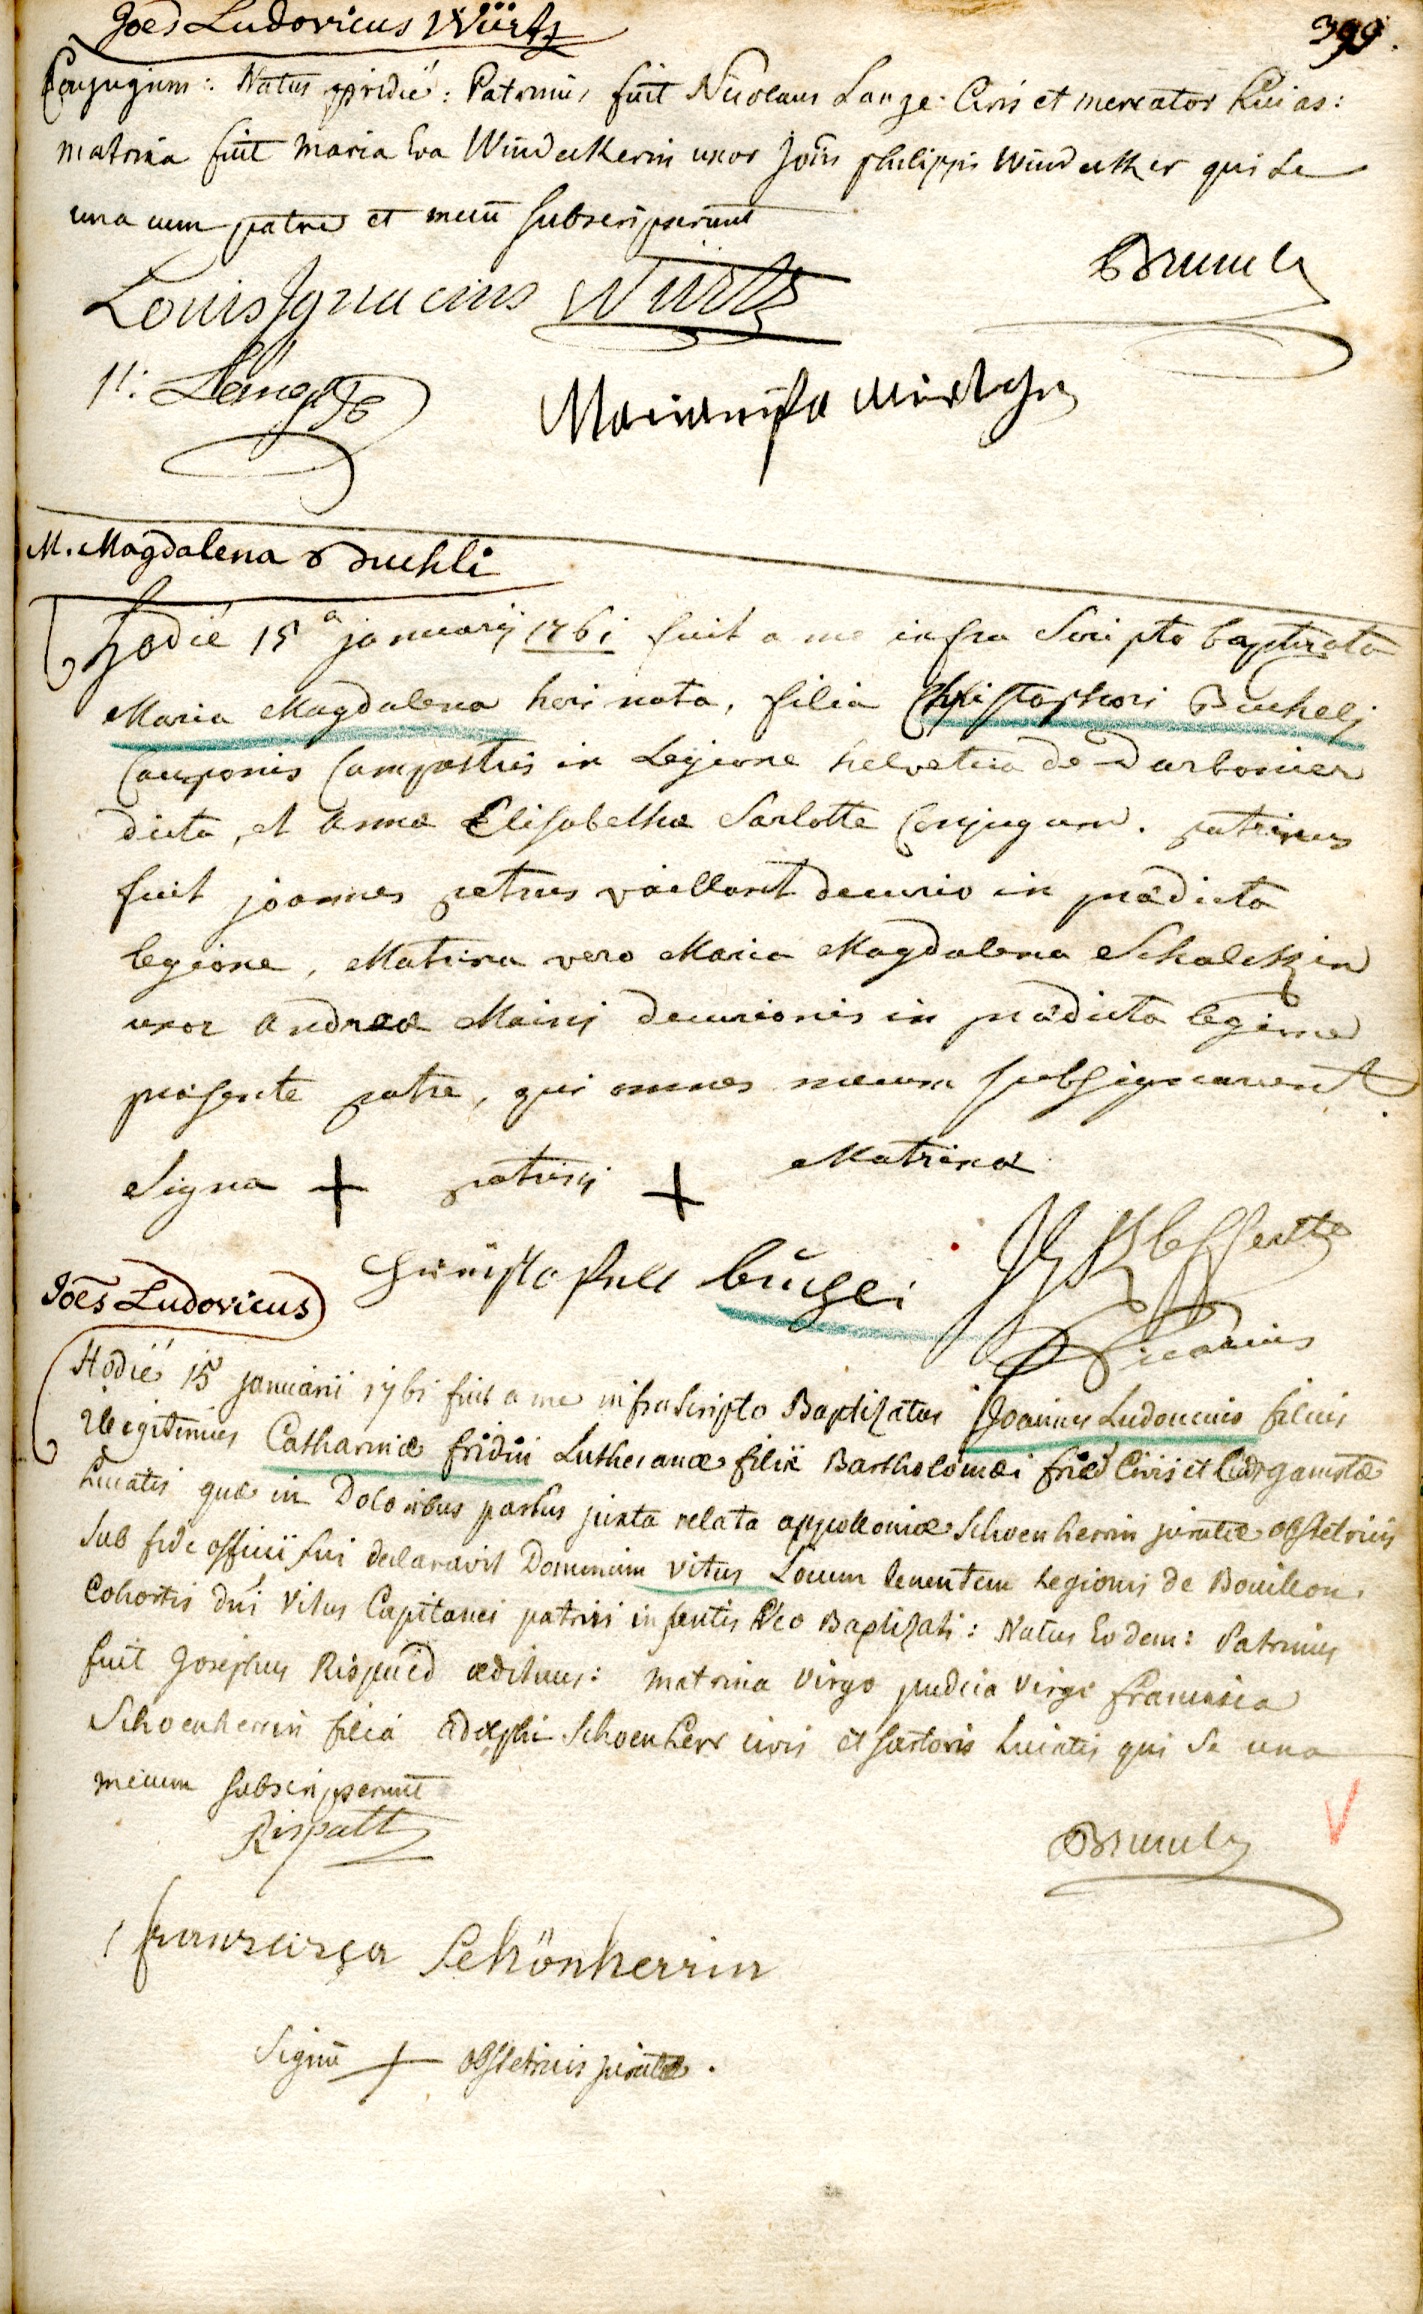 Joes Ludovicus Würtz
399.
Conjugum: Natus pridie: Patrinus fuit Nicolaus Lange Civis et mercator huias:
matrina fuit Maria Eva Windeckerin uxor Jois Philippi Windecker qui se
una cum patre et mecu subscripserunt
Louis Ignacius Würtz
Brunck
Lange
M. Magdalena Buchli
hodie 15a januarij 1761 fuit a me infra Scripto baptizata
Maria Magdalena heri nata, filia Christophori Buchelj
Cauponis Campestris in Legione helvetica de Darbonier
dicta, et Anna Elisabetha Sarlotte Conjugum. patrinus
fuit joannes petrus vaillant decurio in prædicta
legione, Matrina vero Maria Magdalena Schalckin
uxor Andreæ Mainj decurionis in prædicta legione
præsente patre, qui omnes mecum subsignarunt.
Signa + patrinj + Matrinæ
büchei
Vicarius
Joes Ludovicus
Hodie 15 januarii 1761 fuit a me infra Scripto Baptizatus Joannes Ludovicus filius
illegitimus Catharinæ fridin Lutheranæ filiæ Bartholomæi fried Civis et
huiatis quæ in Doloribus partus juxta relata appolloniæ Schoenherrin juratæ obstetricis
sub fide officii sui declaravit Dominum Vitus Locum tenentem Legionis de Bouillon,
Cohortis dni Vitus Capitanei patrem infantis sic Baptizati: Natus Eodem: Patrinus
fuit Josephus Rispued ædituus: matrina Virgo pudica Virgo francisca
Schoenherrin filia adolphi Schoenherr civis et sartoris huiatis qui se una
mecum subscripserunt
Rispatt
Brunck
franzisca Schönherrin
Signu + obstetricis juratæ.